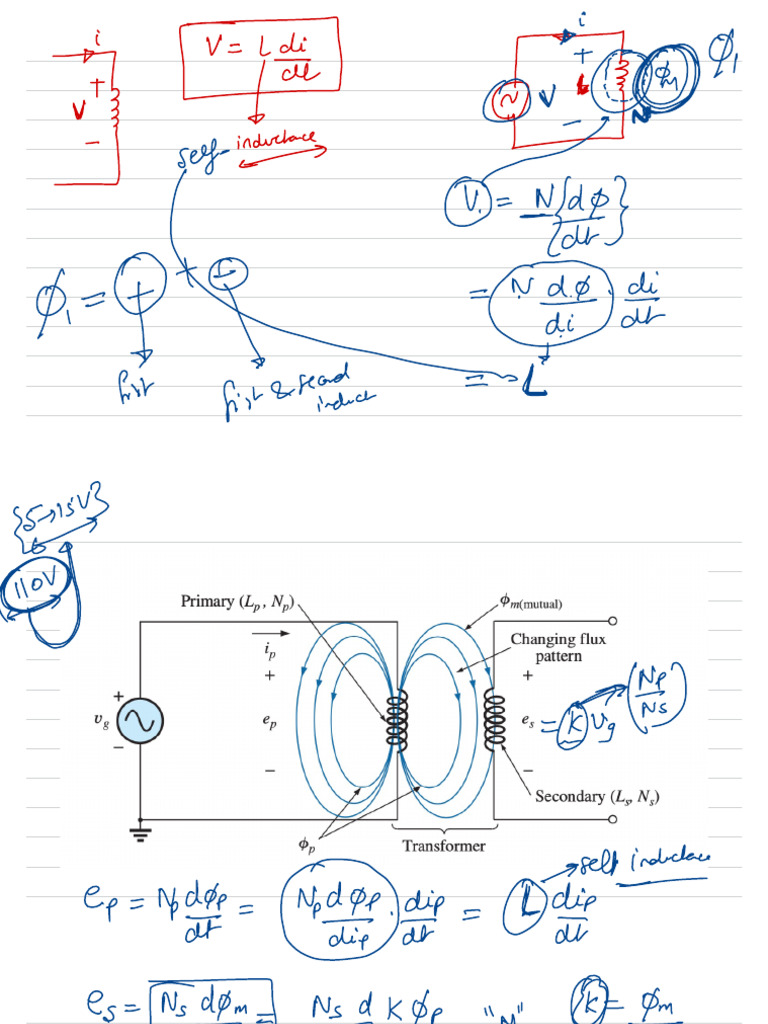 i
V = L di/dt
+
V
-
self-inductance
i
+
V
L
-
N
ϕM
ϕ1
V1 = N {dϕ/dt}
= N dϕ/di · di/dt
= L
ϕ1 = + + +
first
first & second
induct
{5→15V}
110V
Primary (Lp, Np)
ϕm(mutual)
Changing flux
pattern
ip
+
ep
-
+
vg
-
+
es = k vg (Np/Ns)
-
Secondary (Ls, Ns)
ϕp
Transformer
self inductance
ep = Np dϕp/dt = Np dϕp/dip · dip/dt = L dip/dt
es = Ns dϕm = Ns d k ϕp "M" k = ϕm